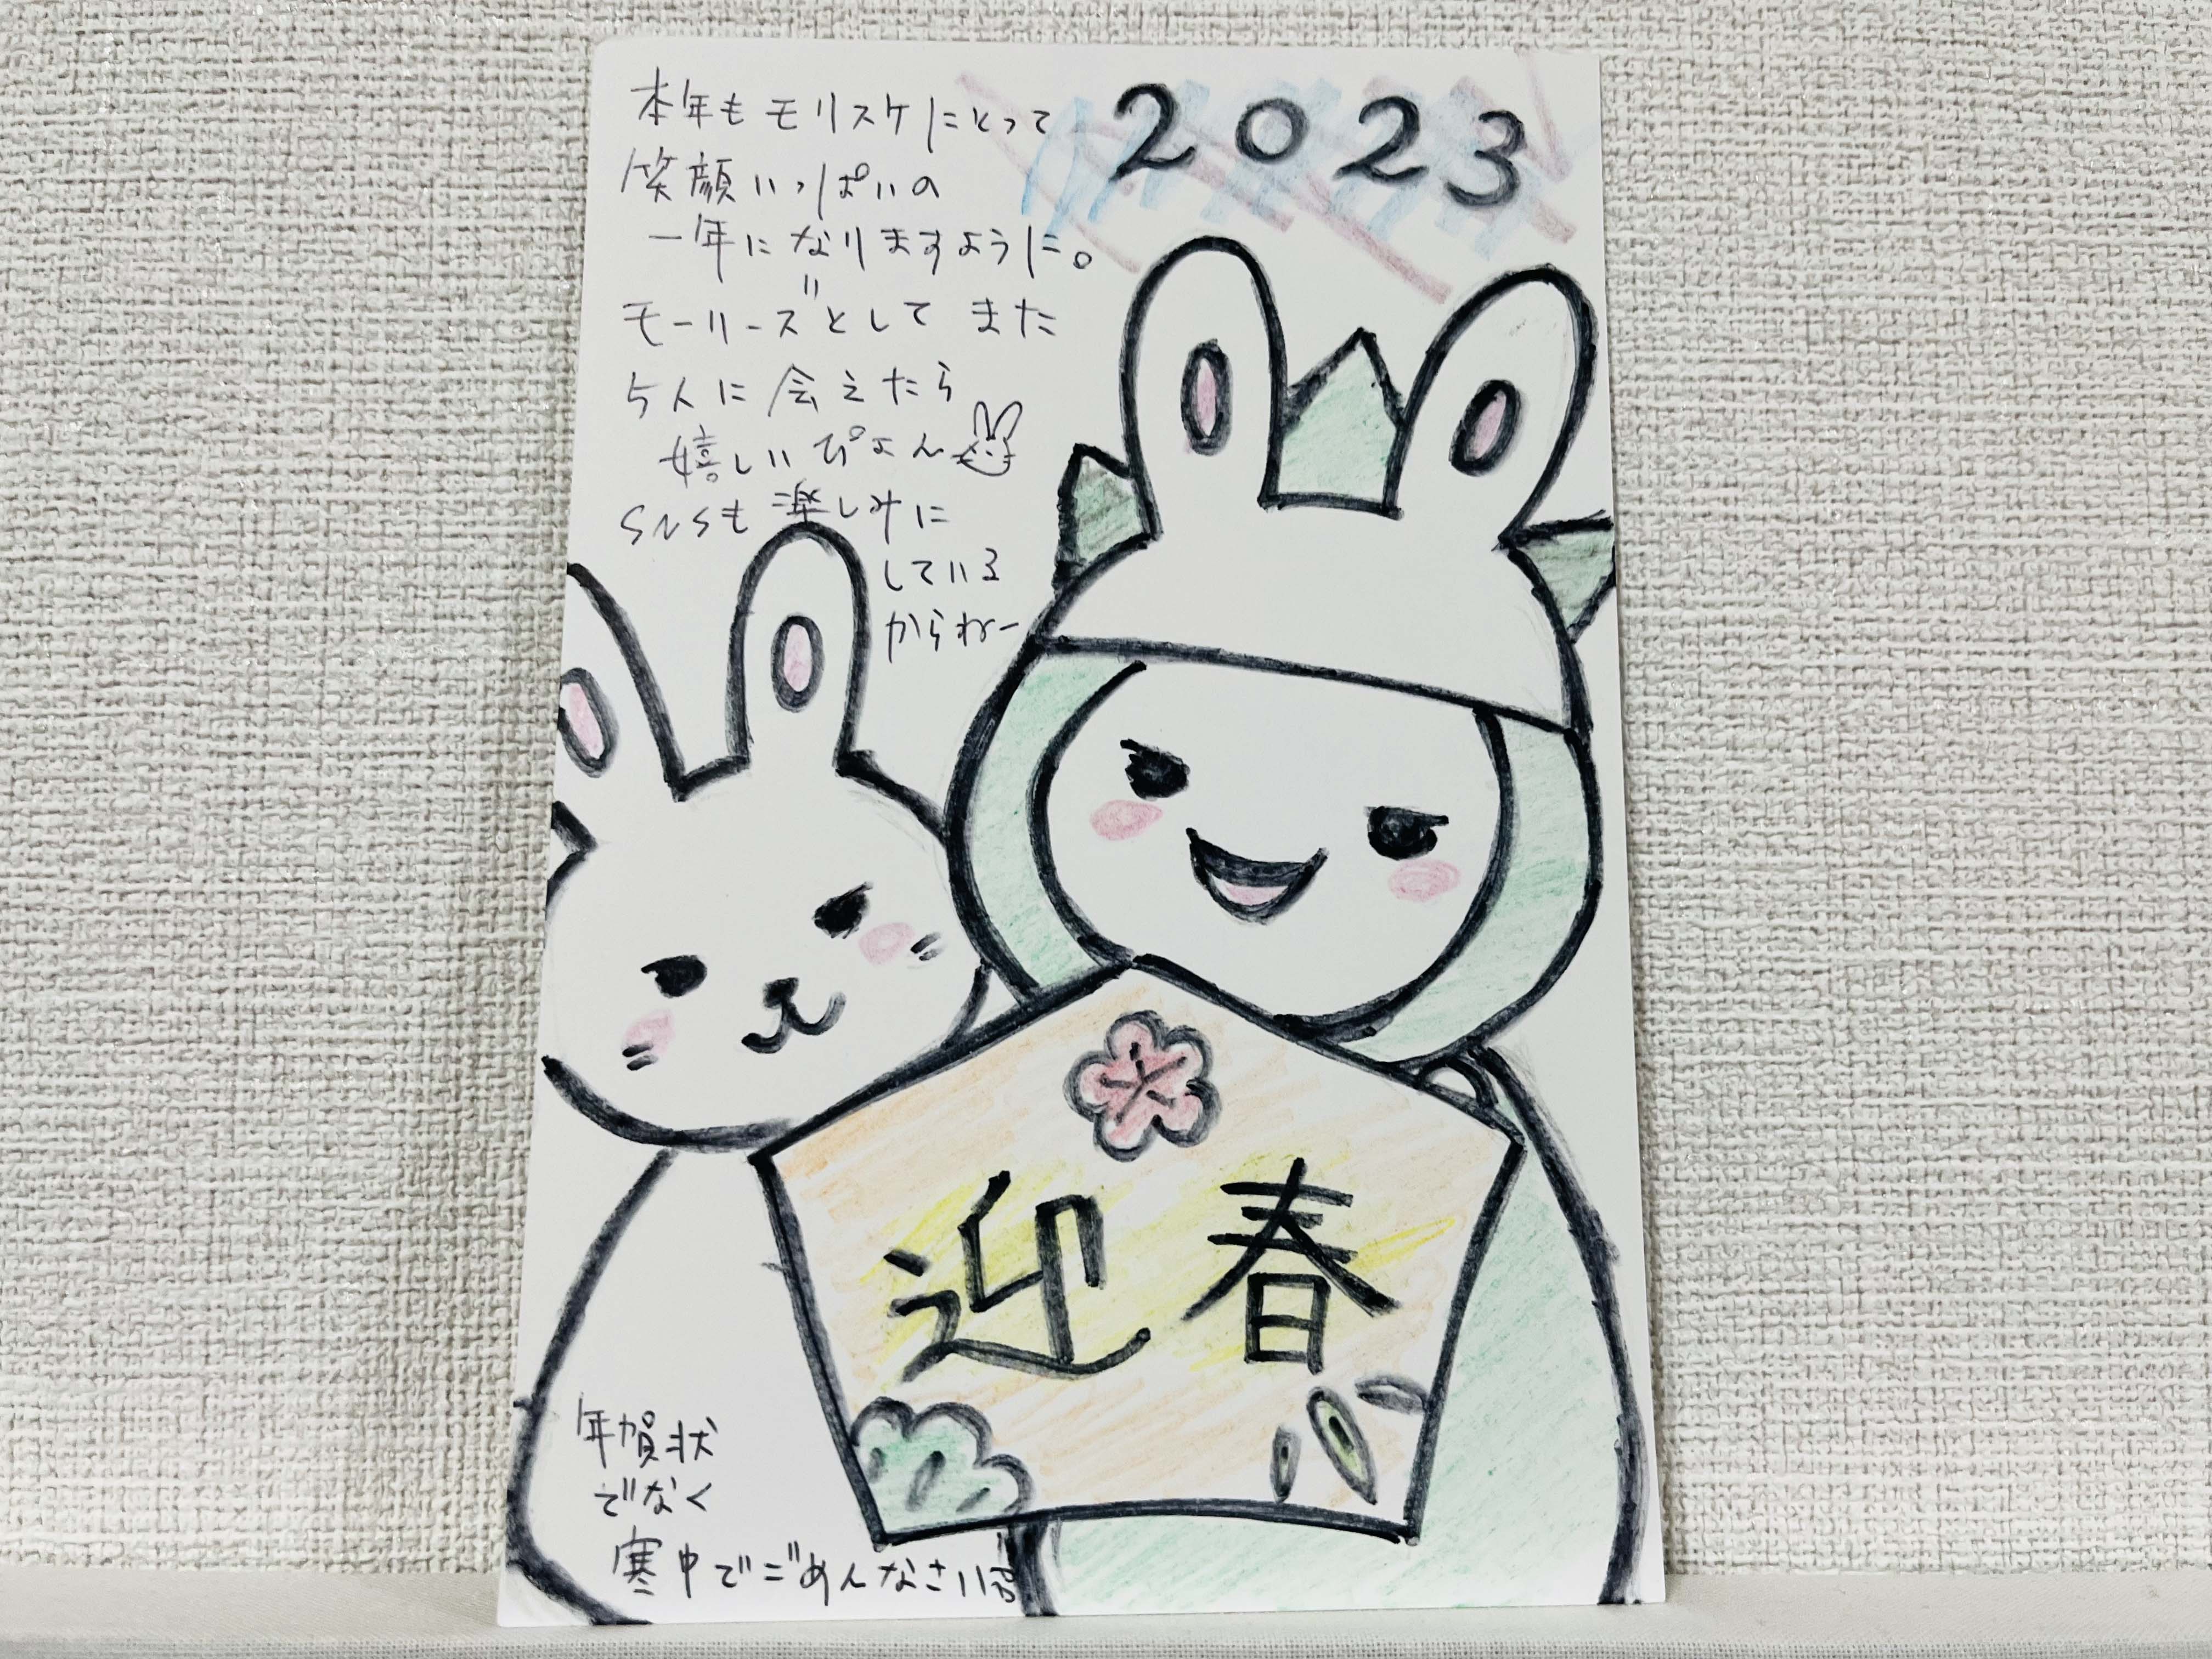 本年もモリスケにとって
笑顔いっぱいの
一年になりますように。
モーリーズとして また
5人に会えたら
嬉しいぴょん
SNSも楽しみに
している
からねー
2023
迎春
年賀状
でなく
寒中でごめんなさい